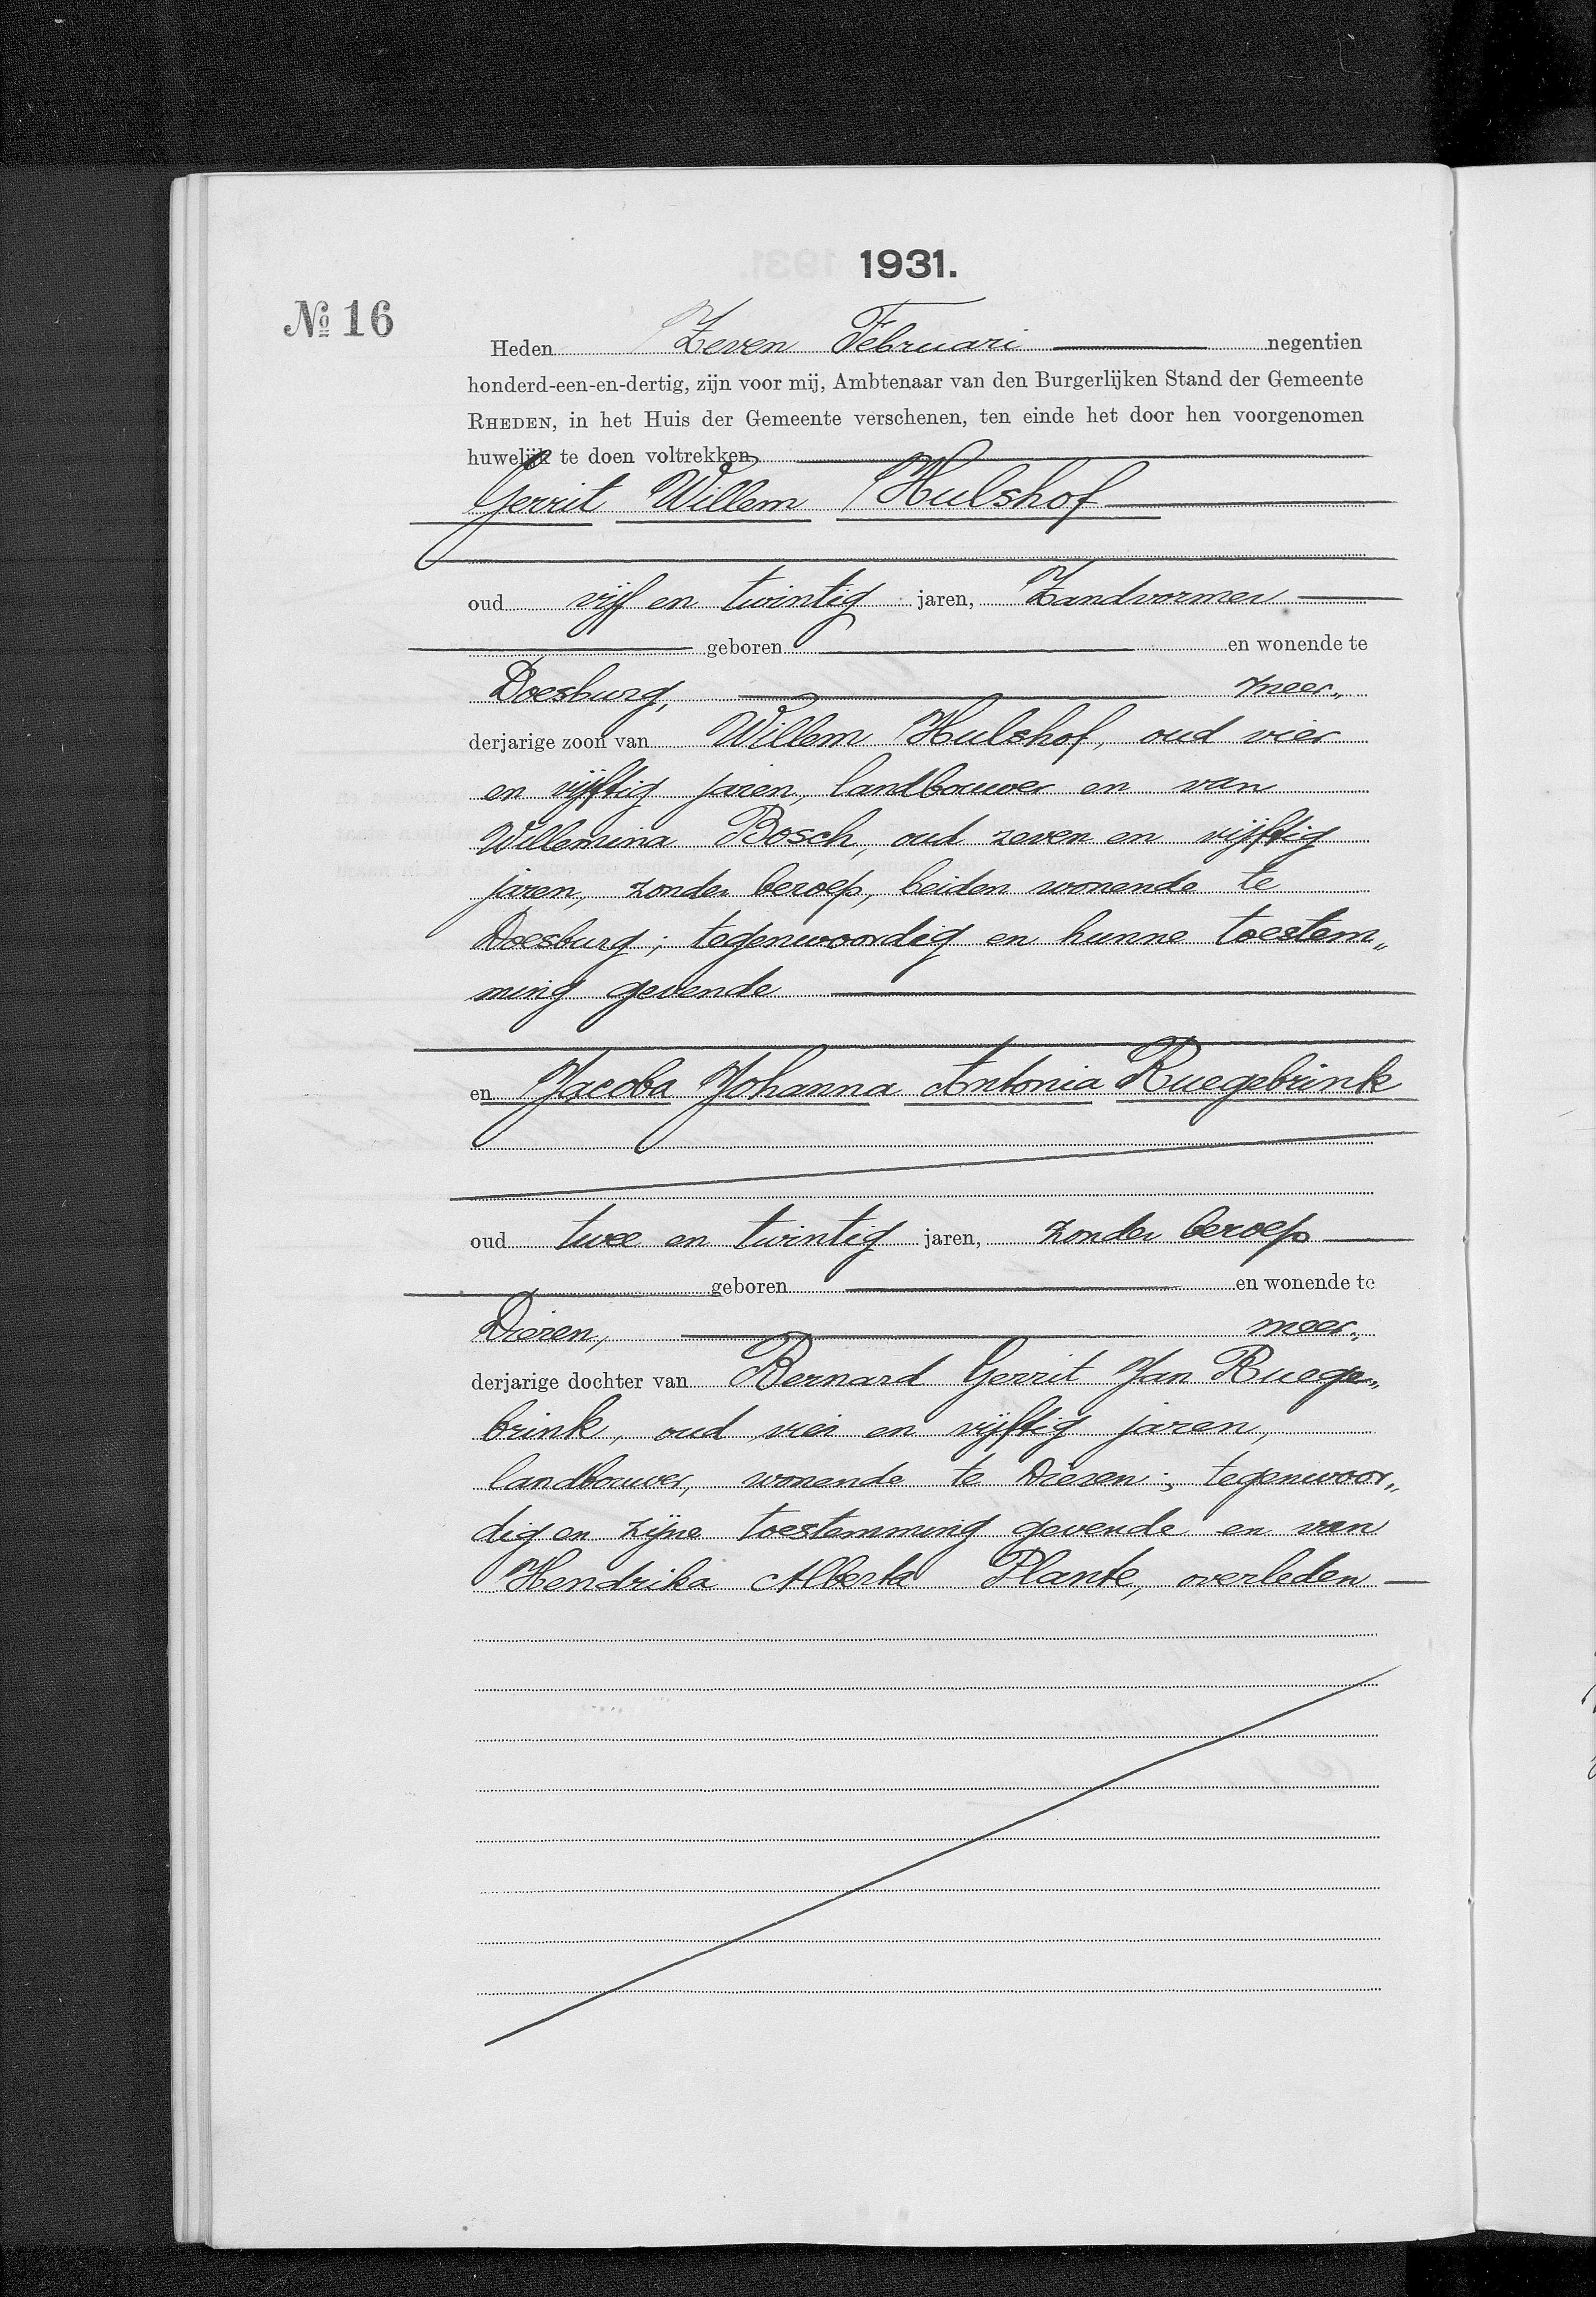 1931.
№ 16
Heden Zeven Februari negentien
honderd-een-en-dertig, zijn voor mij, Ambtenaar van den Burgerlijken Stand der Gemeente
RHEDEN, in het Huis der Gemeente verschenen, ten einde het door hen voorgenomen
huwelijk te doen voltrekken,
Gerrit Willem Hulshof
oud vijf en twintig jaren, Zandvormer
geboren en wonende te
Doesburg, meer„
derjarige zoon van Willem Hulshof, oud vier
en vijftig jaren, landbouwer en van
Willemina Bosch, oud zeven en vijftig
jaren, zonder beroep, beiden wonende te
Doesburg; tegenwoordig en hunne toestem„
ming gevende
en Jacoba Johanna Antonia Ruegebrink
oud twee en twintig jaren, zonder beroep
geboren en wonende te
Dieren, meer„
derjarige dochter van Bernard Gerrit Jan Ruege„
brink, oud vier en vijftig jaren,
landbouwer, wonende te Dieren; tegenwoor„
dig en zijne toestemming gevende en van
Hendrika Alberta Plante, overleden